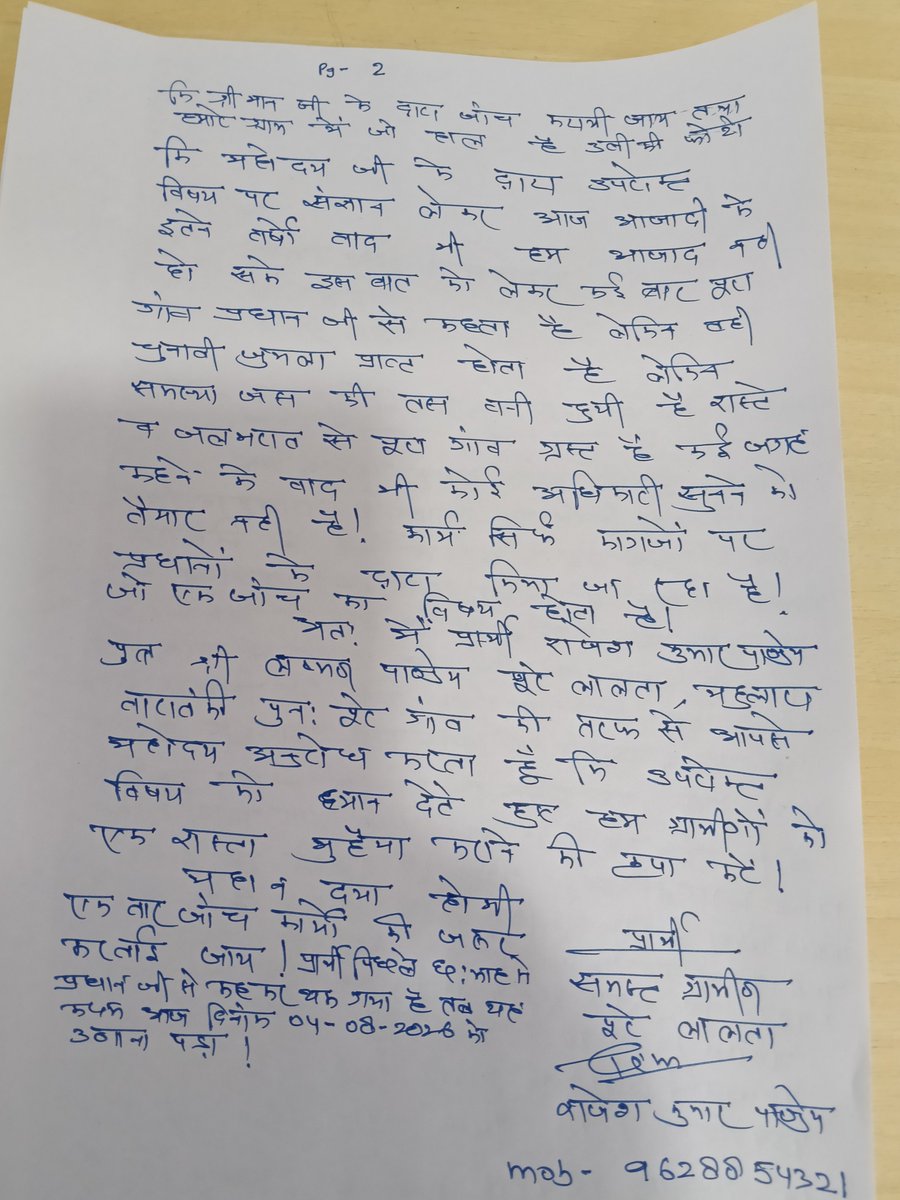 Pg- 2
कि श्री मान जी के द्वारा जांच करायी जाय तथा
हमारे ग्राम में जो हाल है उसी की
कि महोदय जी के द्वारा उपरोक्त
विषय पर संज्ञान लेकर आज आजादी के
इतने वर्षों बाद भी हम आजाद नही
हो सके इस बात को लेकर कई बार पूरा
गांव प्रधान जी से कहता है लेकिन वही
चुनावी जुमला प्राप्त होता है लेकिन
समस्या जस की तस बनी हुयी है रास्ते
व जलभराव से पूरा गांव ग्रस्त है कई जगह
कहने के बाद भी कोई अधिकारी सुनने को
तैयार नही है! कार्य सिर्फ कागजों पर
प्रधानों के द्वारा किया जा रहा है!
जो एक जांच का विषय होता है।
अतः मैं प्रार्थी राजेश कुमार पाण्डेय
पुत्र श्री लक्ष्मण पाण्डेय पूरे लालता,
पुनः पूरे गांव की तरफ से आपसे
महोदय अनुरोध करता हूँ कि उपरोक्त
विषय को ध्यान देते हुए हम ग्रामीणों को
एक रास्ता मुहैया कराने की कृपा करें।
महान दया होगी
एक बार जांच कार्यो की जरूर
करवाई जाय! प्रार्थी पिछले छः माह से
प्रधान जी से कह कर थक गया है तब यह
कदम आज दिनांक 04-08-2026 को
उठाना पड़ा!
प्रार्थी
समस्त ग्रामीण
पूरे लालता
राजेश कुमार पाण्डेय
mob- 9628854321